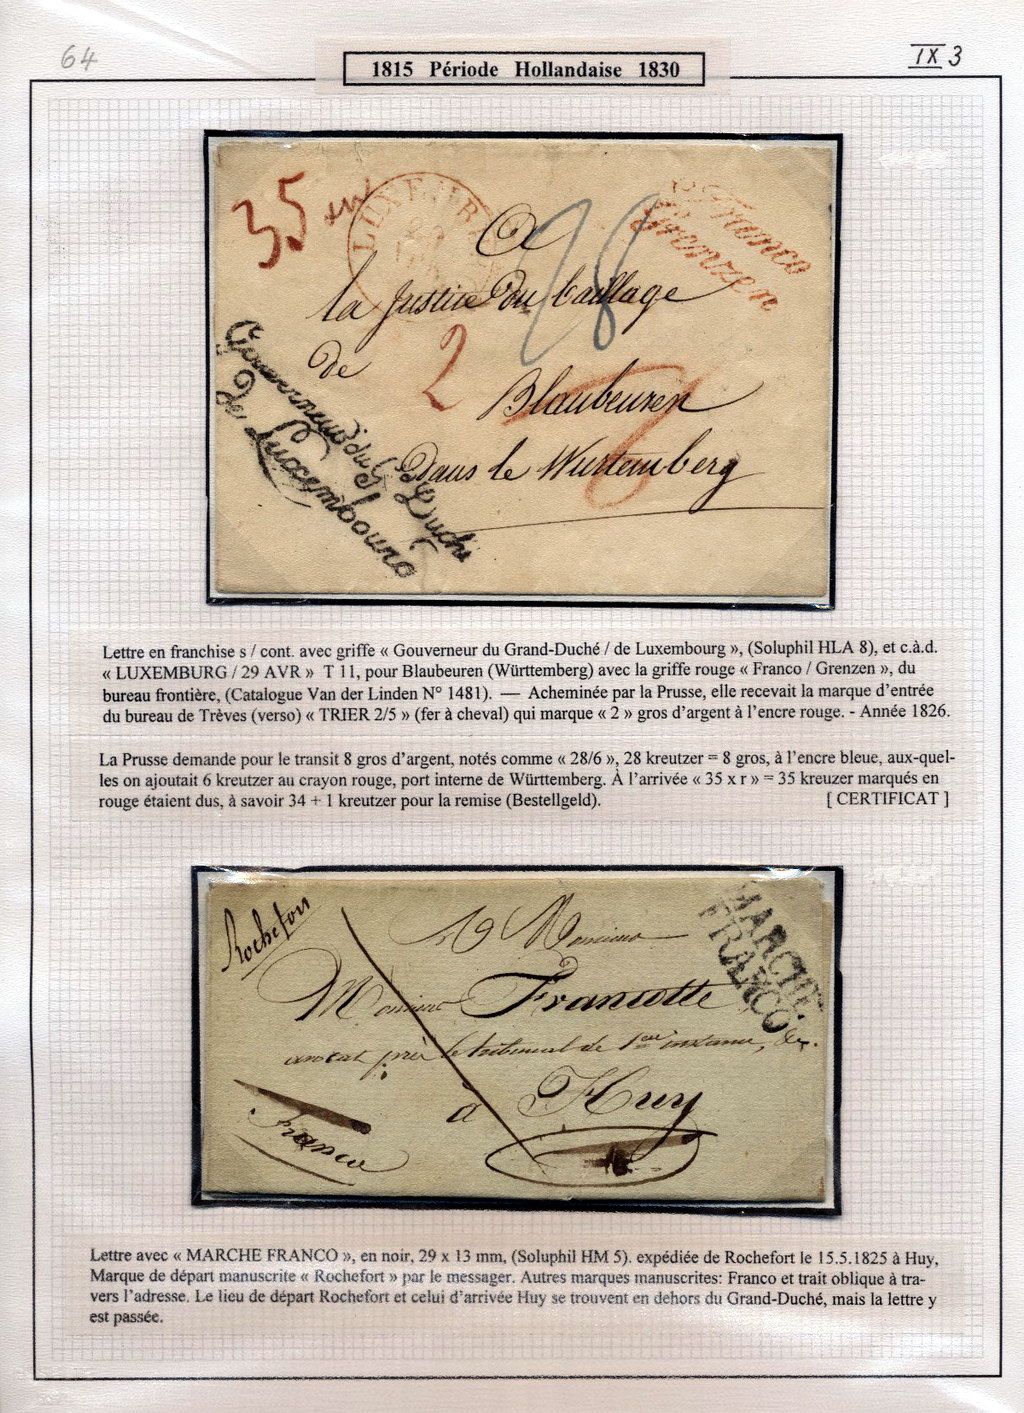 64
IX 3
1815 Période Hollandaise 1830
35 xr
LUXEMBURG
Franco
Grenzen
A
28
la Justice du baillage
de
2
Blaubeuren
6
Dans le Wurtemberg
Gouverneur du Gd Duché
de Luxembourg
Lettre en franchise s / cont. avec griffe « Gouverneur du Grand-Duché / de Luxembourg », (Soluphil HLA 8), et c.à.d.
« LUXEMBURG / 29 AVR » T 11, pour Blaubeuren (Württemberg) avec la griffe rouge « Franco / Grenzen », du
bureau frontière, (Catalogue Van der Linden N° 1481). — Acheminée par la Prusse, elle recevait la marque d’entrée
du bureau de Trèves (verso) « TRIER 2/5 » (fer à cheval) qui marque « 2 » gros d’argent à l’encre rouge. - Année 1826.
La Prusse demande pour le transit 8 gros d’argent, notés comme « 28/6 », 28 kreutzer = 8 gros, à l’encre bleue, aux-quel-
les on ajoutait 6 kreutzer au crayon rouge, port interne de Württemberg. À l’arrivée « 35 x r » = 35 kreuzer marqués en
rouge étaient dus, à savoir 34 + 1 kreutzer pour la remise (Bestellgeld). [ CERTIFICAT ]
Rochefort
MARCHE
FRANCO
A Monsieur
Monsieur Francotte
avocat près le tribunal de 1ere instance, &c.
à Huy
Franco
Lettre avec « MARCHE FRANCO », en noir, 29 x 13 mm, (Soluphil HM 5). expédiée de Rochefort le 15.5.1825 à Huy,
Marque de départ manuscrite « Rochefort » par le messager. Autres marques manuscrites: Franco et trait oblique à tra-
vers l’adresse. Le lieu de départ Rochefort et celui d’arrivée Huy se trouvent en dehors du Grand-Duché, mais la lettre y
est passée.